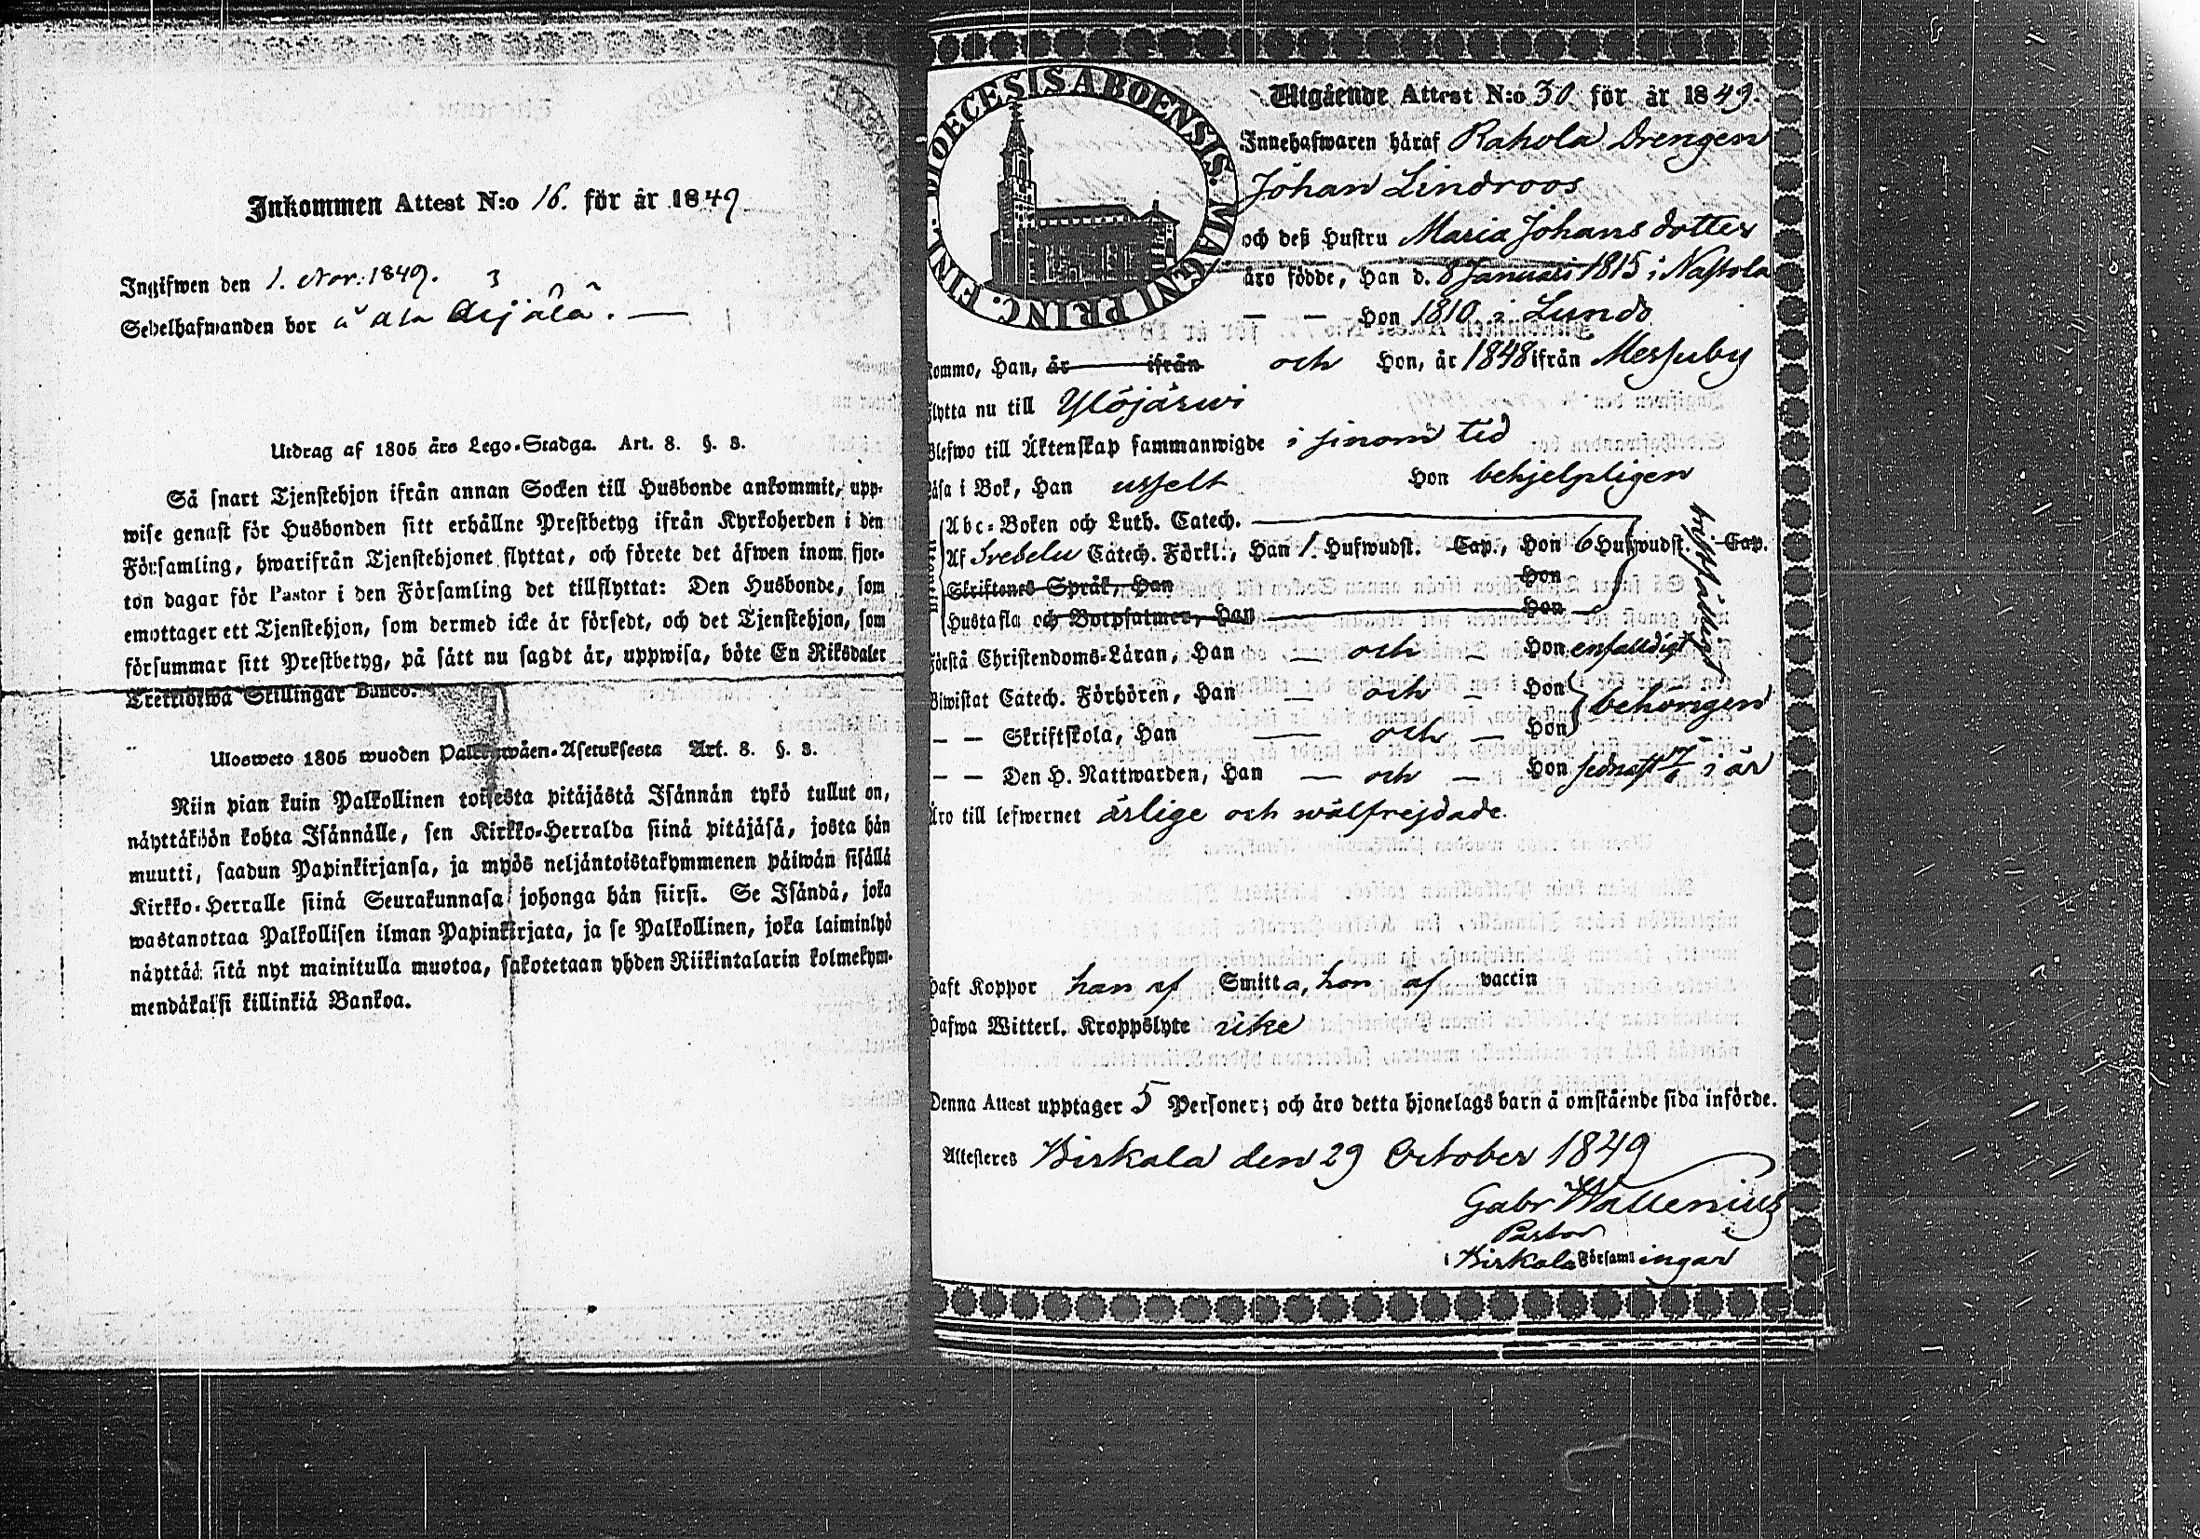 Inkommen Attest N:o 16. för år 1849
Ingifwen den 1. Nov: 1849.
Sedelhafwanden bor å Ala Äijälä.
Utdrag af 1805 års Lego-Stadga. Art. 8. §. 8.
Så snart Tjenstehjon ifrån annan Socken till Husbonde ankommit, upp-
wise genast för Husbonden sitt erhållne Prestbetyg ifrån Kyrkoherden i den
Församling, hwarifrån Tjenstehjonet flyttat, och förete det äfwen inom fjor-
ton dagar för Pastor i den Församling det tillflyttat: Den Husbonde, som
emottager ett Tjenstehjon, som dermed icke är försedt, och det Tjenstehjon, som
försummar sitt Prestbetyg, på sätt nu sagdt är, uppwisa, böte En Riksdaler
Trettiotwå Skillingar Banco.
Ulosweto 1805 wuoden Palkkawäen-Asetuksesta Art. 8. §. 8.
Niin pian kuin Palkollinen toisesta pitäjästä Isännän tykö tullut on,
näyttäköön kohta Isännälle, sen Kirkko-Herralda siinä pitäjäsä, josta hän
muutti, saadun Papinkirjansa, ja myös neljäntoistakymmenen päiwän sisällä
Kirkko-Herralle siinä Seurakunnasa johonga hän siirsi. Se Isändä, joka
wastanottaa Palkollisen ilman Papinkirjata, ja se Palkollinen, joka laiminlyö
näyttää sitä nyt mainitulla muotoa, sakotetaan yhden Riikintalarin kolmekym-
mendäkaksi killinkiä Bankoa.
DIOECESIS ABOENSIS. MAGNI PRINC. FINL.
Utgående Attest N:o 30 för år 1849.
Innehafwaren häraf Rahola Drengen
Johan Lindroos
och deß Hustru Maria Johansdotter
äro födde, Han d. 8 Januari 1815 i Nastola
— — Hon 1810 i Lundo
kommo, Han, år ifrån och Hon, år 1848 ifrån Messuby
flytta nu till Ylöjärwi
Blefwo till Äktenskap sammanwigde i sinom tid
Läsa i Bok, Han usselt Hon behjelpligen
Abc-Boken och Luth. Catech.
Af Svebelii Catech. Förkl., Han 1. Hufwudst. Cap., Hon 6 Hufwudst. Cap.
Skriftenes Språk, Han Hon
Hustafla och Botpsalmer, Han Hon
Förstå Christendoms-Läran, Han — och — Hon enfaldigt
Biwistat Catech. Förhören, Han — och — Hon behörigen
— — Skriftskola, Han — och — Hon
— — Den H. Nattwarden, Han — och — Hon sednast 17/6 i år
Äro till lefwernet ärlige och wälfrejdade.
Haft Koppor han af Smitta, hon af vaccin
Hafwa Witterl. Kroppslyte icke
Denna Attest upptager 5 Personer; och äro detta hjonelags barn å omstående sida införde.
Attesteres Birkala den 29 October 1849
Gabr Wallenius
Pastor
i Birkala Församlingar